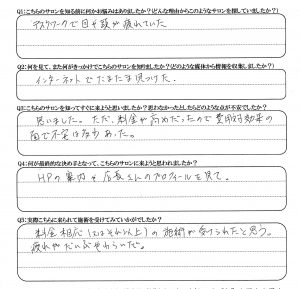 Q1:こちらのサロンを知る前に何かお悩みはありましたか?(どんな理由からこのようなサロンを探していましたか?)
デスクワークで目や頭が疲れていた
Q2:何を見て、また何がきっかけでこちらのサロンを知りましたか?(どのような媒体から情報を収集しましたか?)
インターネットでたまたま見つけた.
Q3:こちらのサロンを知ってすぐに来ようと思いましたか?思わなかったとしたらどのような点が不安でしたか?
思いました。ただ、料金が高めだったので費用対効果の
面で不安は多少あった。
Q4:何が最終的な決め手となって、こちらのサロンに来ようと思われましたか?
HPの案内や店長さんのプロフィールを見て。
Q5:実際こちらに来られて施術を受けてみていかがでしたか?
料金相応(又はそれ以上)の施術が受けられたと思う。
疲れがだいぶやわらいだ。